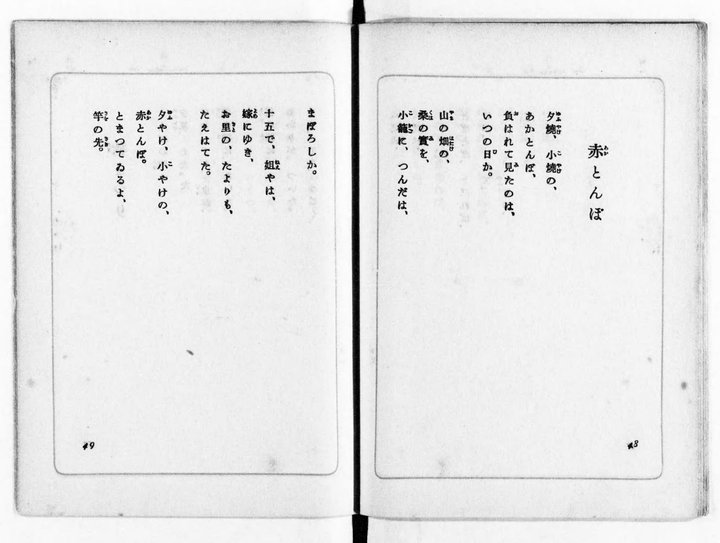 赤とんぼ
夕燒、小燒の、
あかとんぼ、
負はれて見たのは、
いつの日か。
山の畑の、
桑の實を、
小籠に、つんだは、
48
まぼろしか。
十五で、姐やは、
嫁にゆき、
お里の、たよりも、
たえはてた。
夕やけ、小やけの、
赤とんぼ。
とまつてゐるよ、
竿の先。
49